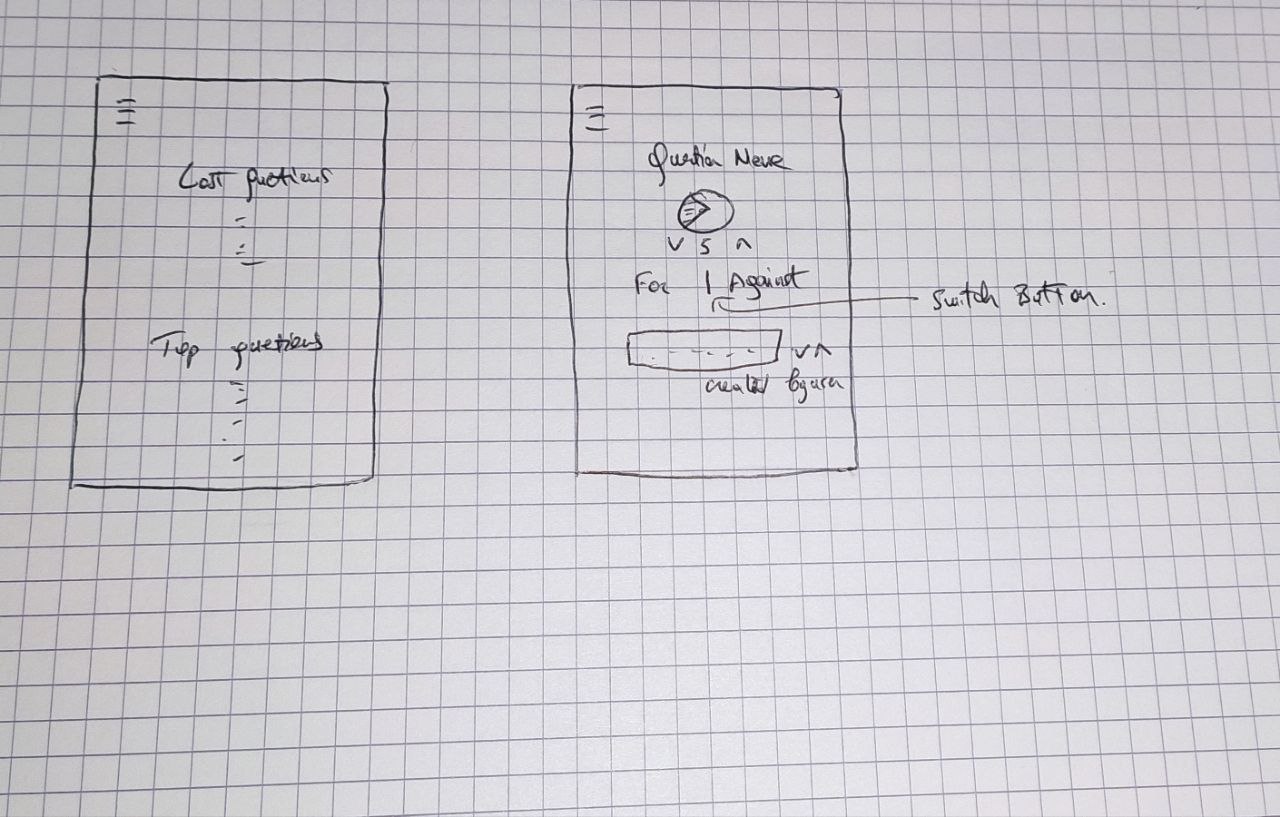 Last questions
Top questions
Question Name
v 5 ʌ
For | Against
Switch Button.
v ʌ
created by user